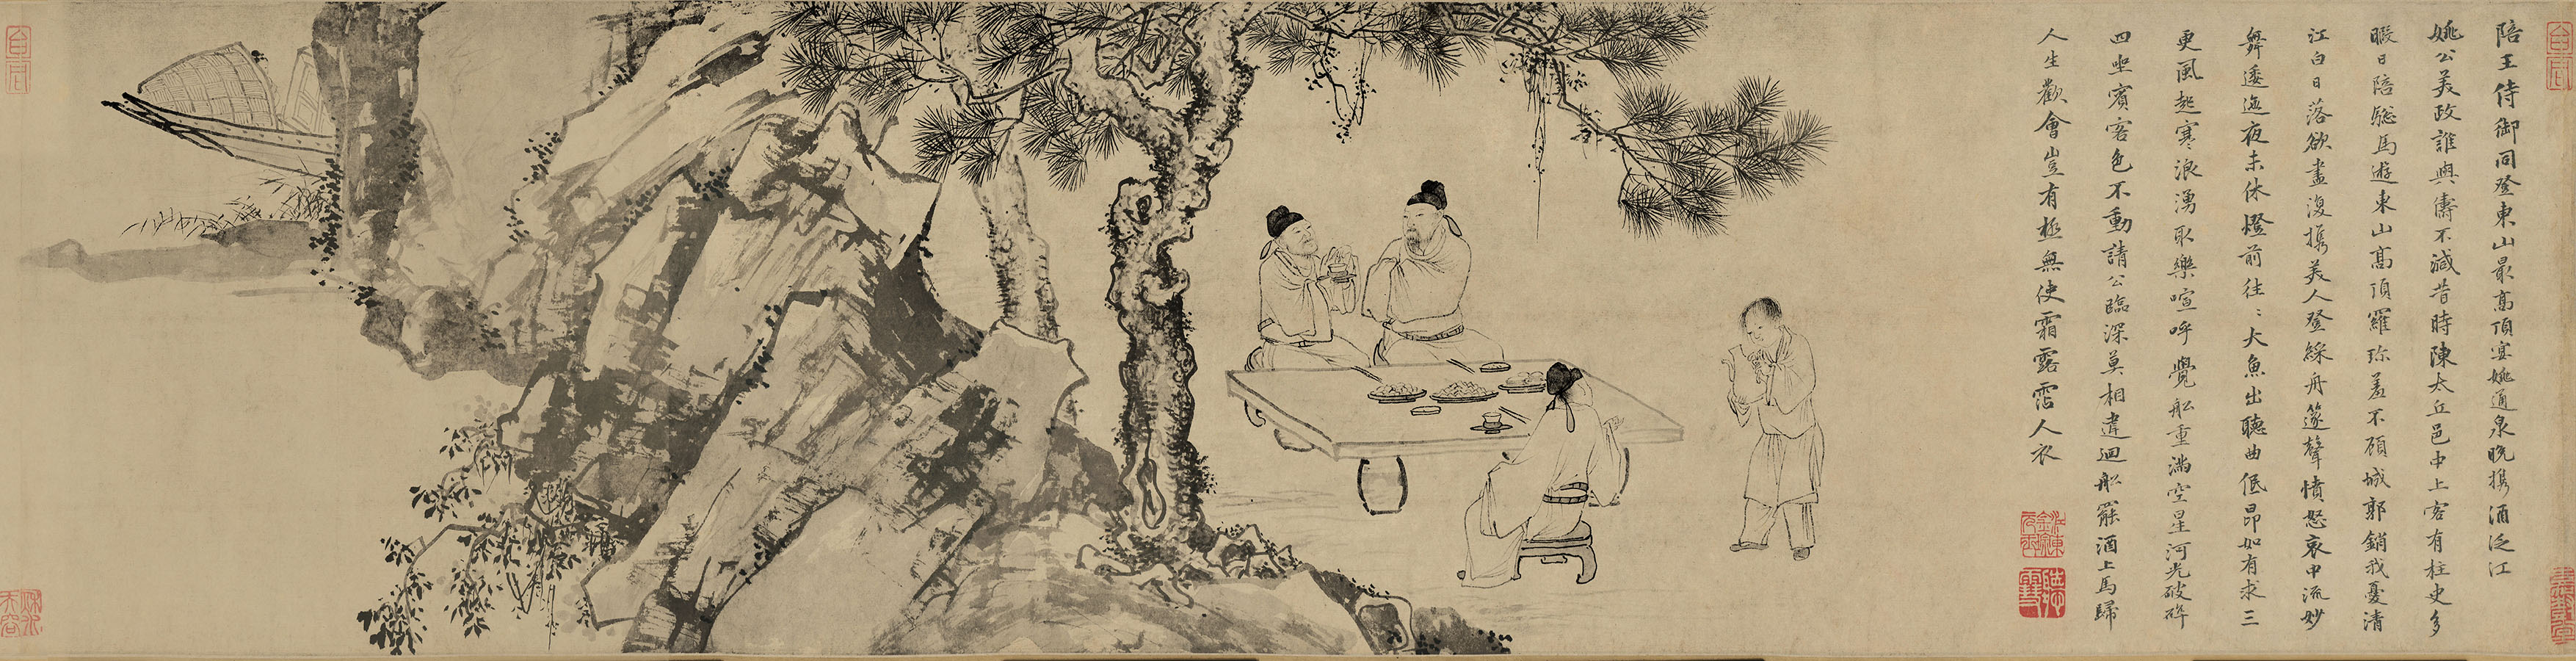 陪王侍御同登東山最高頂宴姚通泉晚擕酒泛江
姚公美政誰與儔不減昔時陳太丘邑中上客有柱史多
暇日陪驄馬遊東山高頂羅珎羞不顧城郭銷我憂清
江白日落欲盡復擕美人登綵舟篴聲憤怒哀中流妙
舞逶迤夜未休燈前往〻大魚出聽曲低昂如有求三
更風起寒浪湧取樂喧呼覺船重滿空星河光破碎
四坐賓客色不動請公臨深莫相違迴船罷酒上馬歸
人生歡會豈有極無使霜露霑人衣